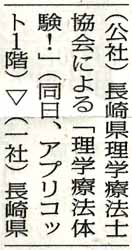 （公社）長崎県理学療法士
協会による「理学療法体
験！」（同日、アプリコッ
ト1階）▽（一社）長崎県